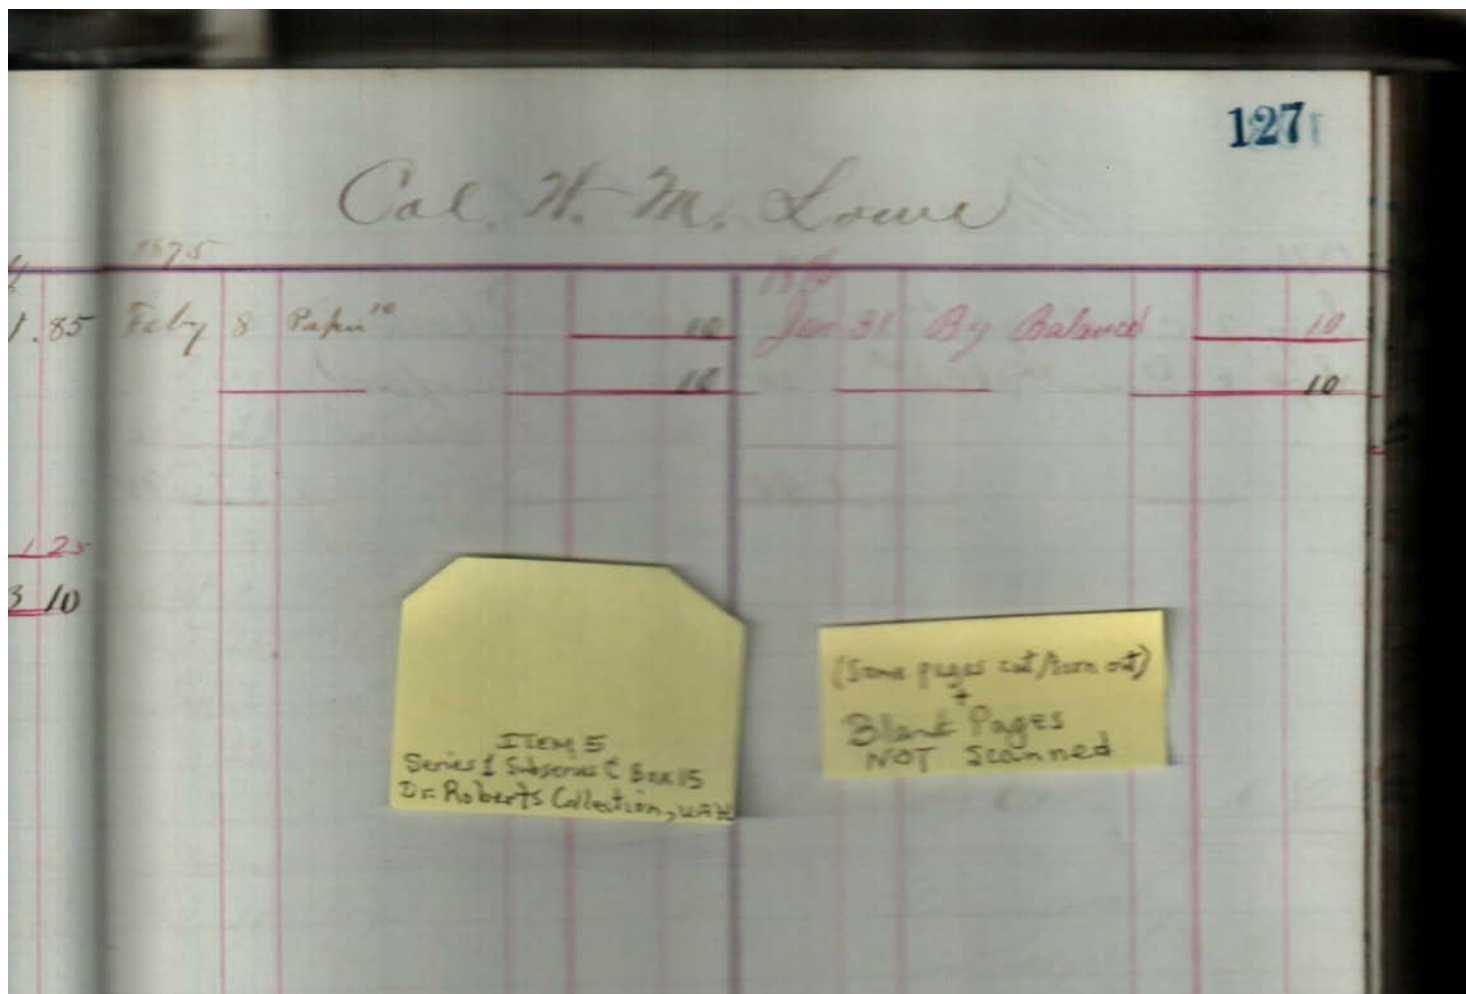 127
Col. W. M. Lowe
1875
1.85 Feby 8 Paper 10 10 Jan 31 By Balance 10
10 10
1 25
3 10
ITEM 5
Series 1 Subseries C Box 15
Dr. Roberts Collection, UAH
(Some pages cut/torn out)
+
Blank Pages
NOT Scanned